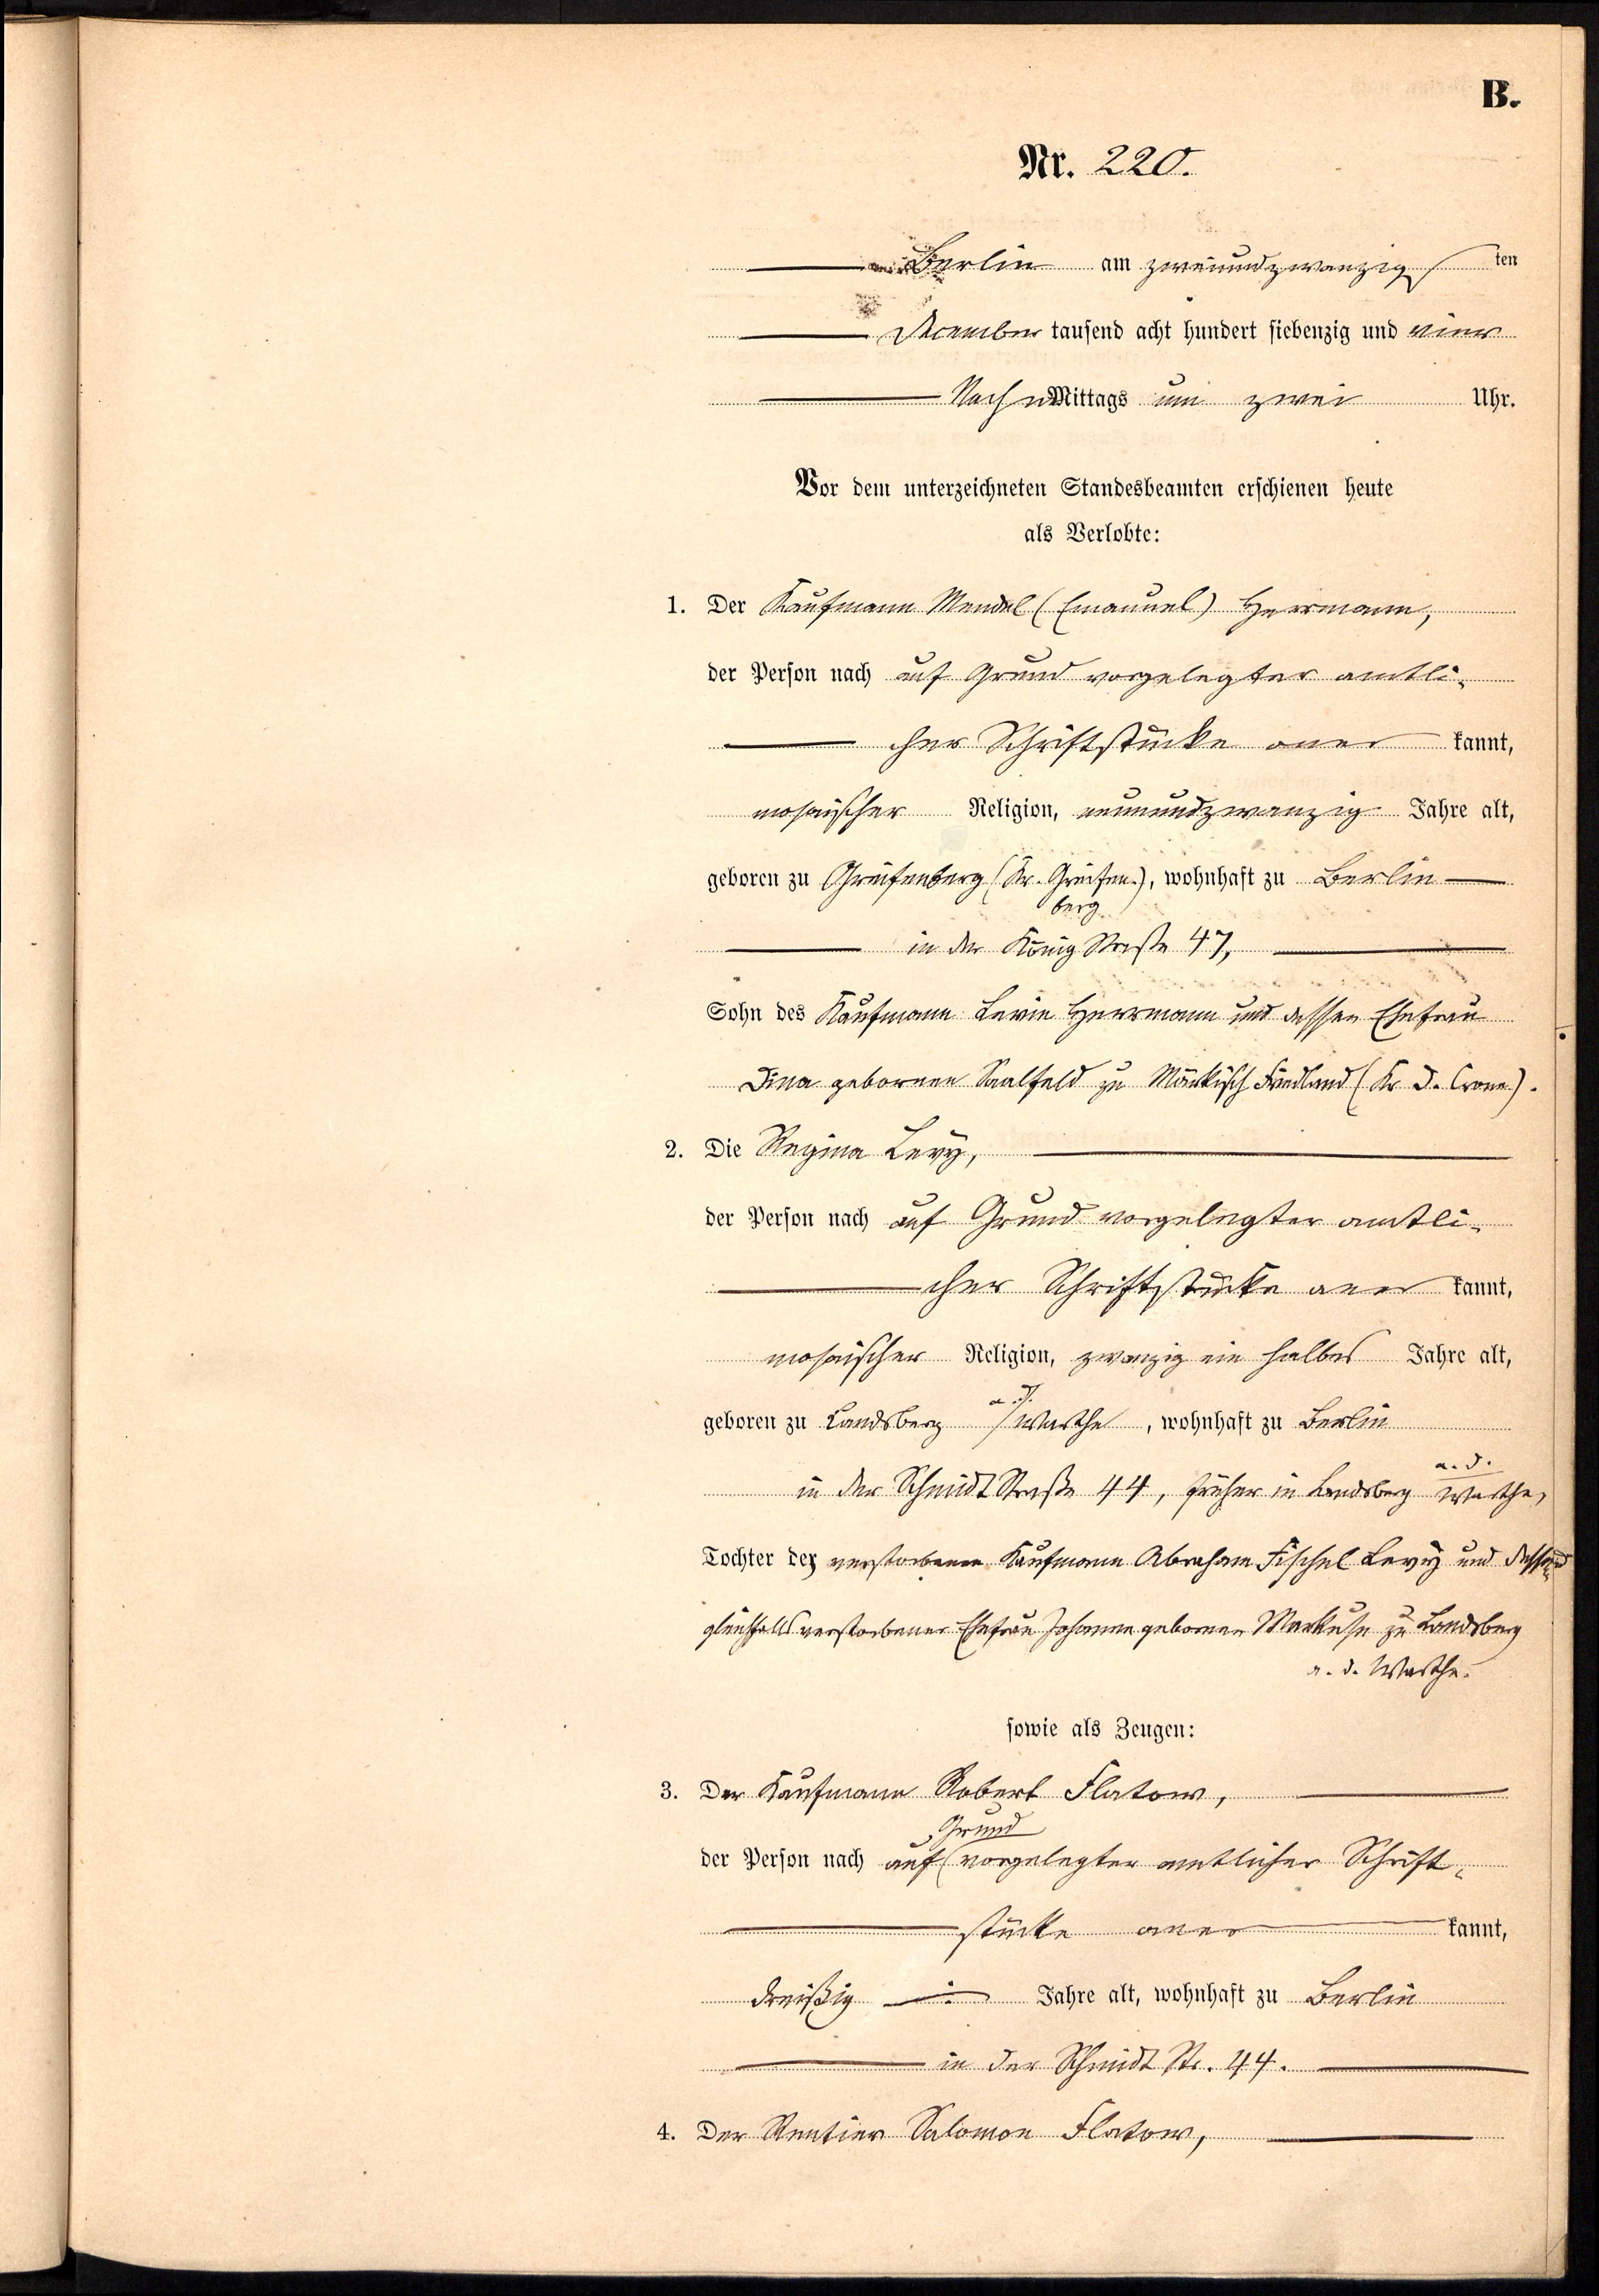 B.
Nr. 220.
Berlin am zweiundzwanzigsten
December tausend acht hundert siebenzig und vier
Nachmittags um zwei Uhr.
Vor dem unterzeichneten Standesbeamten erschienen heute
als Verlobte:
1. Der Kaufmann Mendel (Emanuel) Herrmann,
der Person nach auf Grund vorgelegter amtli-
cher Schriftstücke anerkannt,
mosaischer Religion, neunundzwanzig Jahre alt,
geboren zu Greifenberg (Kr. Greifen-), wohnhaft zu Berlin
berg
in der König Straße 47,
Sohn des Kaufmann Levin Herrmann und dessen Ehefrau
Dina gebornen Saalfeld zu Märkisch Friedland (Kr. D. Crone).
2. Die Regina Levy,
der Person nach auf Grund vorgelegter amtli-
cher Schriftstücke anerkannt,
mosaischer Religion, zwanzig ein halbes Jahre alt,
a. d.
geboren zu Landsberg / Warthe, wohnhaft zu Berlin
a. d.
in der Schmidt Straße 44, früher in Landsberg Warthe,
Tochter des verstorbenen Kaufmann Abraham Fischel Levy und dessen
gleichfalls verstorbener Ehefrau Johanne gebornen Markuse zu Landsberg
a. d. Warthe.
sowie als Zeugen:
3. Der Kaufmann Robert Flatow,
Grund
der Person nach auf vorgelegter amtlicher Schrift-
stücke anerkannt,
dreißig Jahre alt, wohnhaft zu Berlin
in der Schmidt Str. 44.
4. Der Rentier Salomon Flatow,